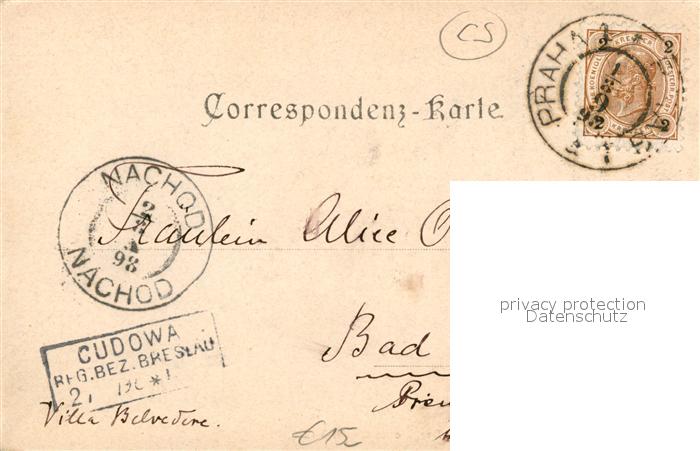 CS
PRAHA 1
2 KREUZER 2
2 2
Correspondenz-Karte
NACHOD
2
98
NACHOD
Fräulein Alice
privacy protection
Datenschutz
CUDOWA
REG.BEZ.BRESLAU
Bad
Villa Belvedere.
€15